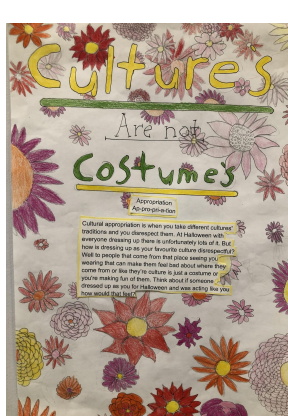 Cultures
Are not
Costume's
Appropriation
Ap-pro-pri-a-tion
Cultural appropriation is when you take different cultures'
traditions and you disrespect them. At Halloween with
everyone dressing up there is unfortunately lots of it. But
how is dressing up as your favourite culture disrespectful?
Well to people that come from that place seeing you
wearing that can make them feel bad about where they
come from or like they're culture is just a costume or
you're making fun of them. Think about if someone
dressed up as you for Halloween and was acting like you
how would that feel?